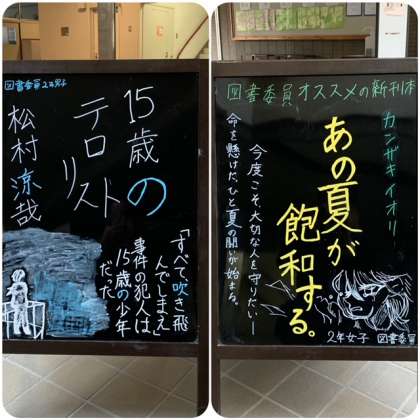 図書委員2年男子
15歳の
テロリスト
松村涼哉
「すべて、吹き飛
んでしまえ」
事件の犯人は
15歳の少年
だった
図書委員オススメの新刊本
カンザキイオリ
あの夏が
飽和する。
今度こそ大切な人を守りたい―
命を懸けた、ひと夏の闘いが始まる。
2年女子 図書委員